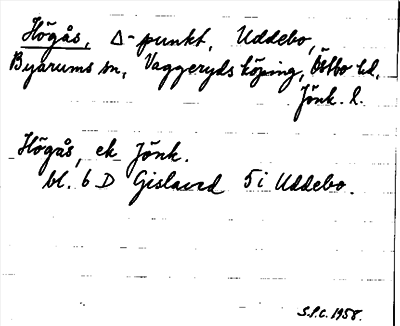 Högås, Δ-punkt, Uddebo,
Byarums sn, Vaggeryds köping, Östbo hd,
Jönk. l.
Högås, ek Jönk.
bl. 6 D Gislaved 5 i Uddebo.
S.P.C. 1958.